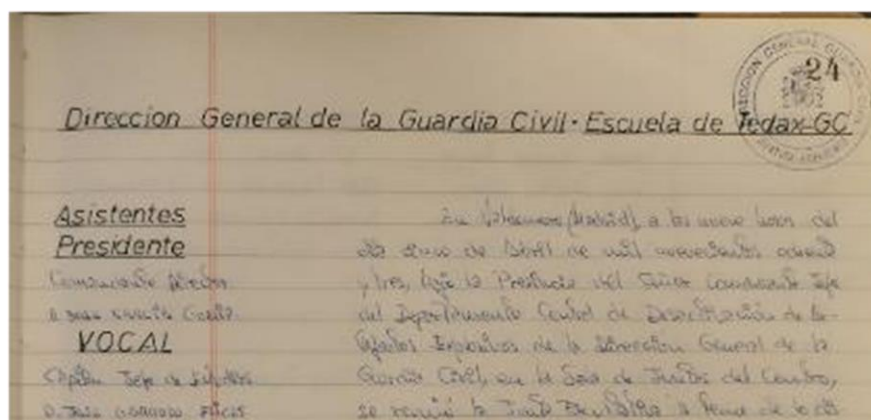 24
Direccion General de la Guardia Civil · Escuela de Tedax-GC
Asistentes
Presidente
Comandante
VOCAL
Capitán Jefe de
D. Jose
En Valdemoro (Madrid), a las nueve horas del
día cinco de Abril de mil novecientos ochenta
y tres, bajo la Presidencia del Señor Comandante Jefe
del Departamento Central de Desactivación de
Explosivos de la Dirección General de la
Guardia Civil, en la Sala de Juntas del Centro,
se reunió la Junta